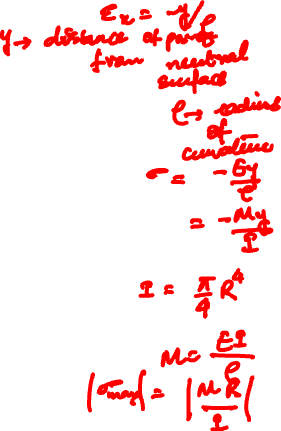 εx = -y/ρ
y → distance of point
from neutral
surface
ρ → radius
of
curvature
σ = -Ey/ρ
= -My/I
I = π/4 R⁴
M = EI/ρ
|σmax| = |MR/I|